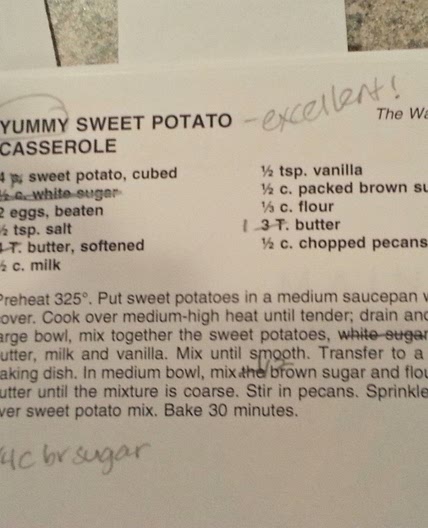 YUMMY SWEET POTATO - excellent!
The Wa
CASSEROLE
4 p. sweet potato, cubed
½ c. white sugar
2 eggs, beaten
½ tsp. salt
4 T. butter, softened
½ c. milk
½ tsp. vanilla
½ c. packed brown su
⅓ c. flour
1 3 T. butter
½ c. chopped pecans
Preheat 325°. Put sweet potatoes in a medium saucepan w
over. Cook over medium-high heat until tender; drain and
arge bowl, mix together the sweet potatoes, white sugar
utter, milk and vanilla. Mix until smooth. Transfer to a
aking dish. In medium bowl, mix the brown sugar and flou
utter until the mixture is coarse. Stir in pecans. Sprinkle
ver sweet potato mix. Bake 30 minutes.
/4c br sugar